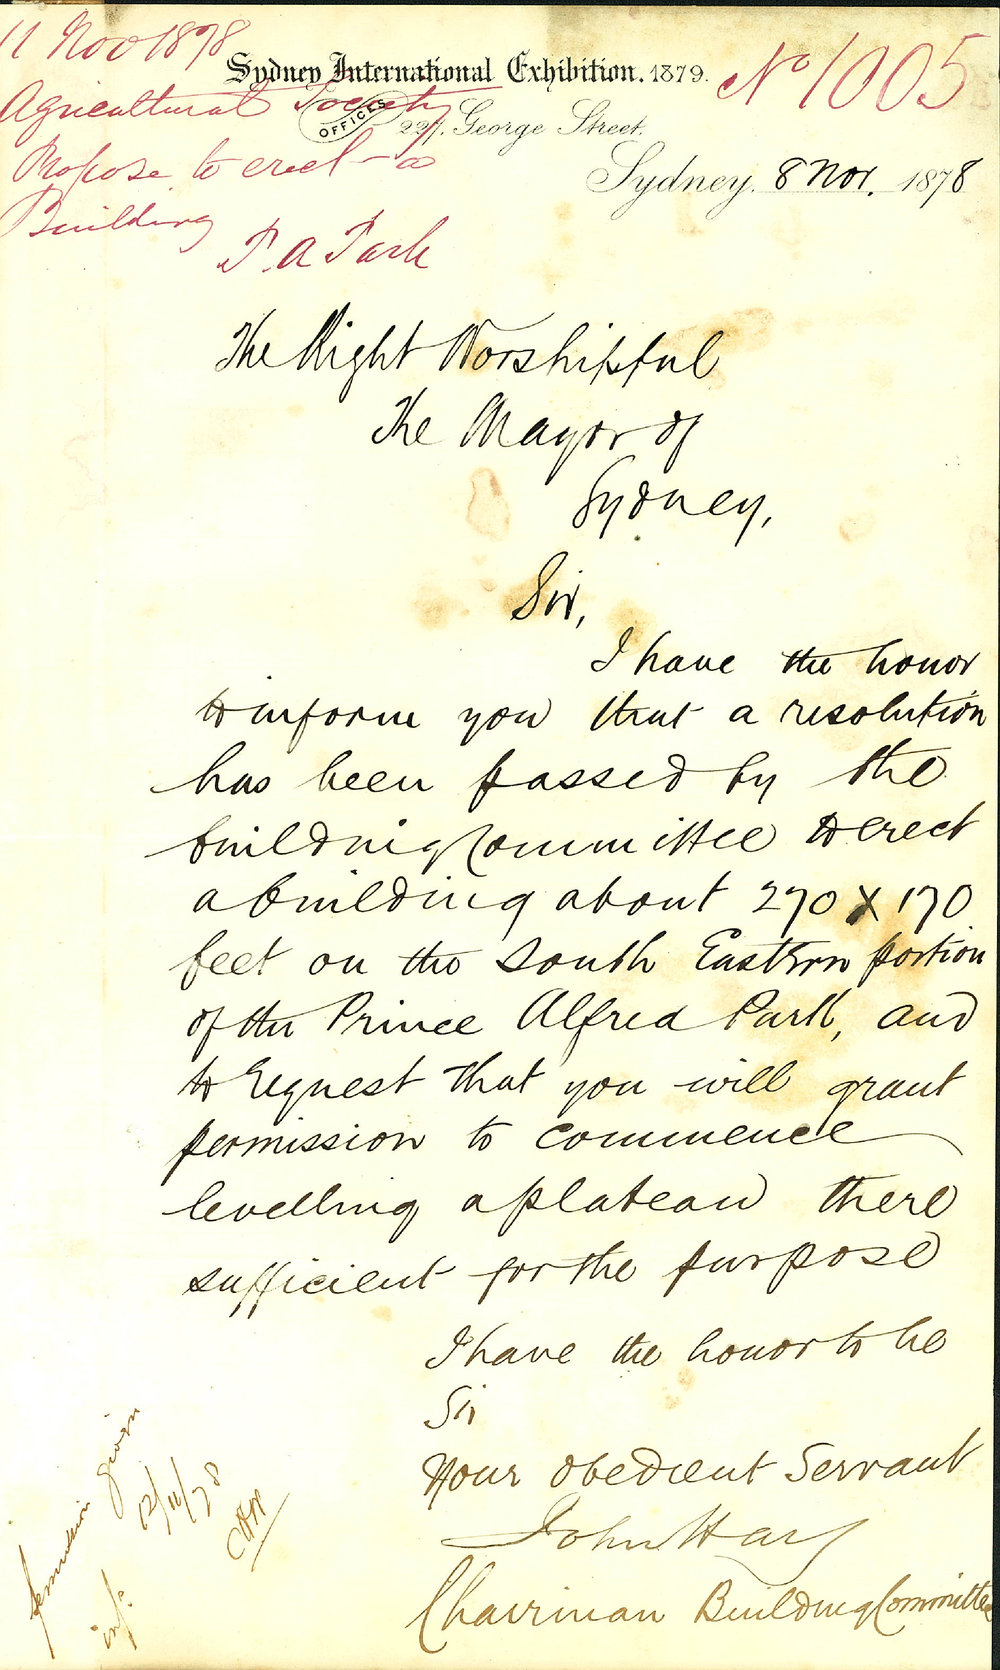 11 Nov 1878
Agricultural Society
Propose to erect a
Building
P. A Park
No 1005
Sydney International Exhibition. 1879.
OFFICES
George Street.
Sydney. 8 Nov. 1878
The Right Worshipful
The Mayor of
Sydney,
Sir,
I have the honor
to inform you that a resolution
has been passed by the
building Committee to erect
a building about 270 X 170
feet on the South Eastern portion
of the Prince Alfred Park, and
to request that you will grant
permission to commence
levelling a plateau there
sufficient for the purpose
I have the honor to be
Sir
Your obedient Servant
John Hay
Chairman Building Committee
permission given
12/11/78
inf.